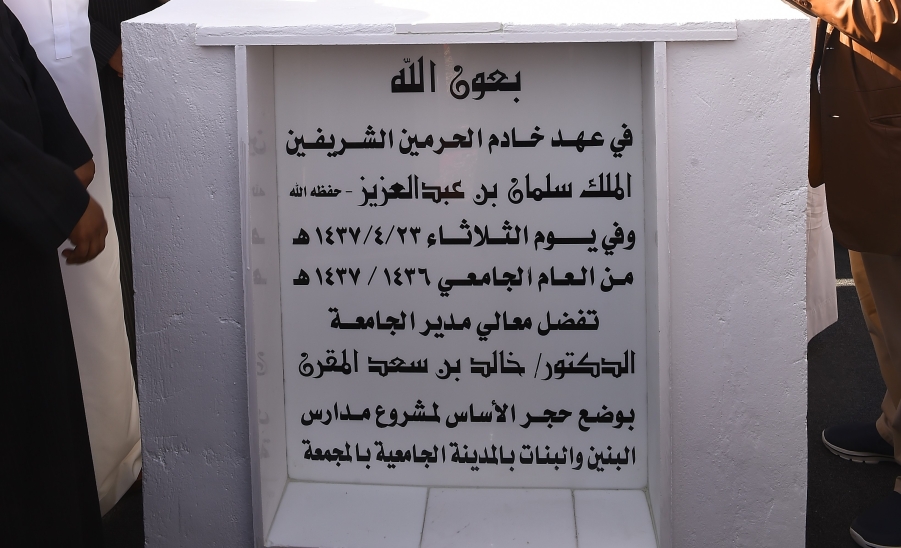 بعون الله
في عهد خادم الحرمين الشريفين
الملك سلمان بن عبدالعزيز - حفظه الله
وفي يوم الثلاثاء ١٤٣٧/٤/٢٣ هـ
من العام الجامعي ١٤٣٦ / ١٤٣٧ هـ
تفضل معالي مدير الجامعة
الدكتور/ خالد بن سعد المقرن
بوضع حجر الأساس لمشروع مدارس
البنين والبنات بالمدينة الجامعية بالمجمعة